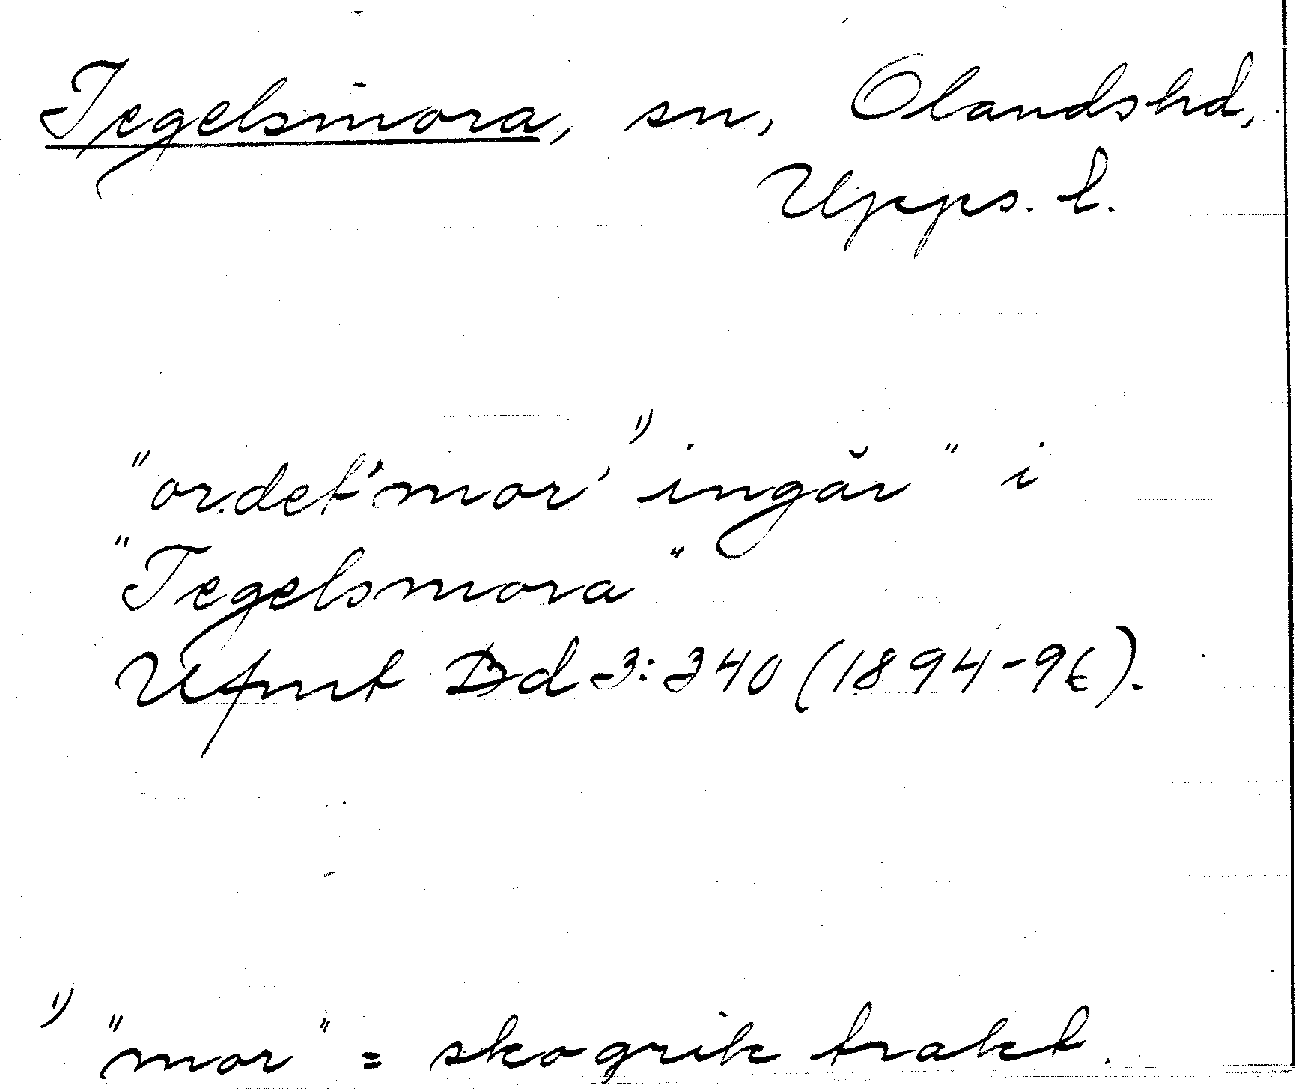 Tegelsmora, sn, Olandshd,
Upps. l.
"ordet 'mor' 1) ingår" i
"Tegelsmora"
Ufmt Bd 3: 240 (1894-96).
1) "mor" = skogrik trakt.